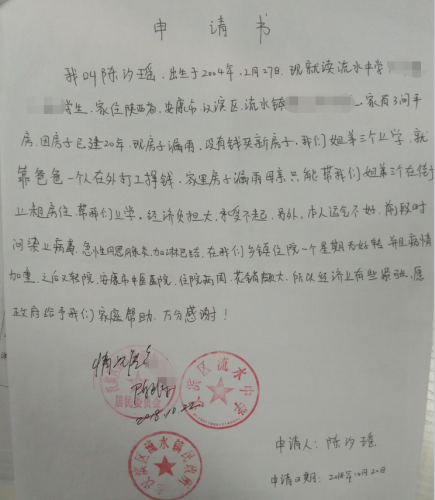 申请书
我叫陈汐瑶,出生于2004年,12月27日.现就读流水中学
学生.家住陕西省,安康市,汉滨区,流水镇 家有3间平
房,因房子已建20年.现房子漏雨,没有钱买新房子,我们姐弟三个上学.就
靠爸爸一个人在外打工挣钱.家里房子漏雨母亲只能带我们姐弟三个在街
上租房住.帮我们上学.经济负担大,承受不起.另外,本人运气不好.前段时
间染上病毒.急性 加淋巴结.在我们乡镇住院一个星期 好转.并且病情
加重.之后又转院.安康市中医医院.住院两周.花销大.所以经济上有些紧张.愿
政府给予我们家庭帮助.万分感谢!
情况属实
居民委员会
2018.10.22
汉滨区流水中学
汉滨区流水镇民政所
申请人:陈汐瑶
申请日期:2018年10月20日